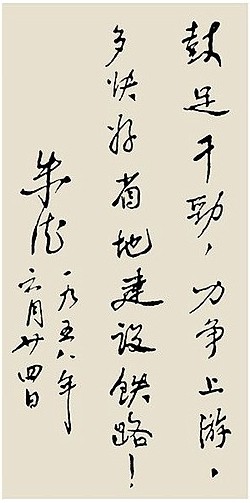 鼓足干勁，力争上游，
多快好省地建設鉄路！
朱德
一九五八年
六月廿四日